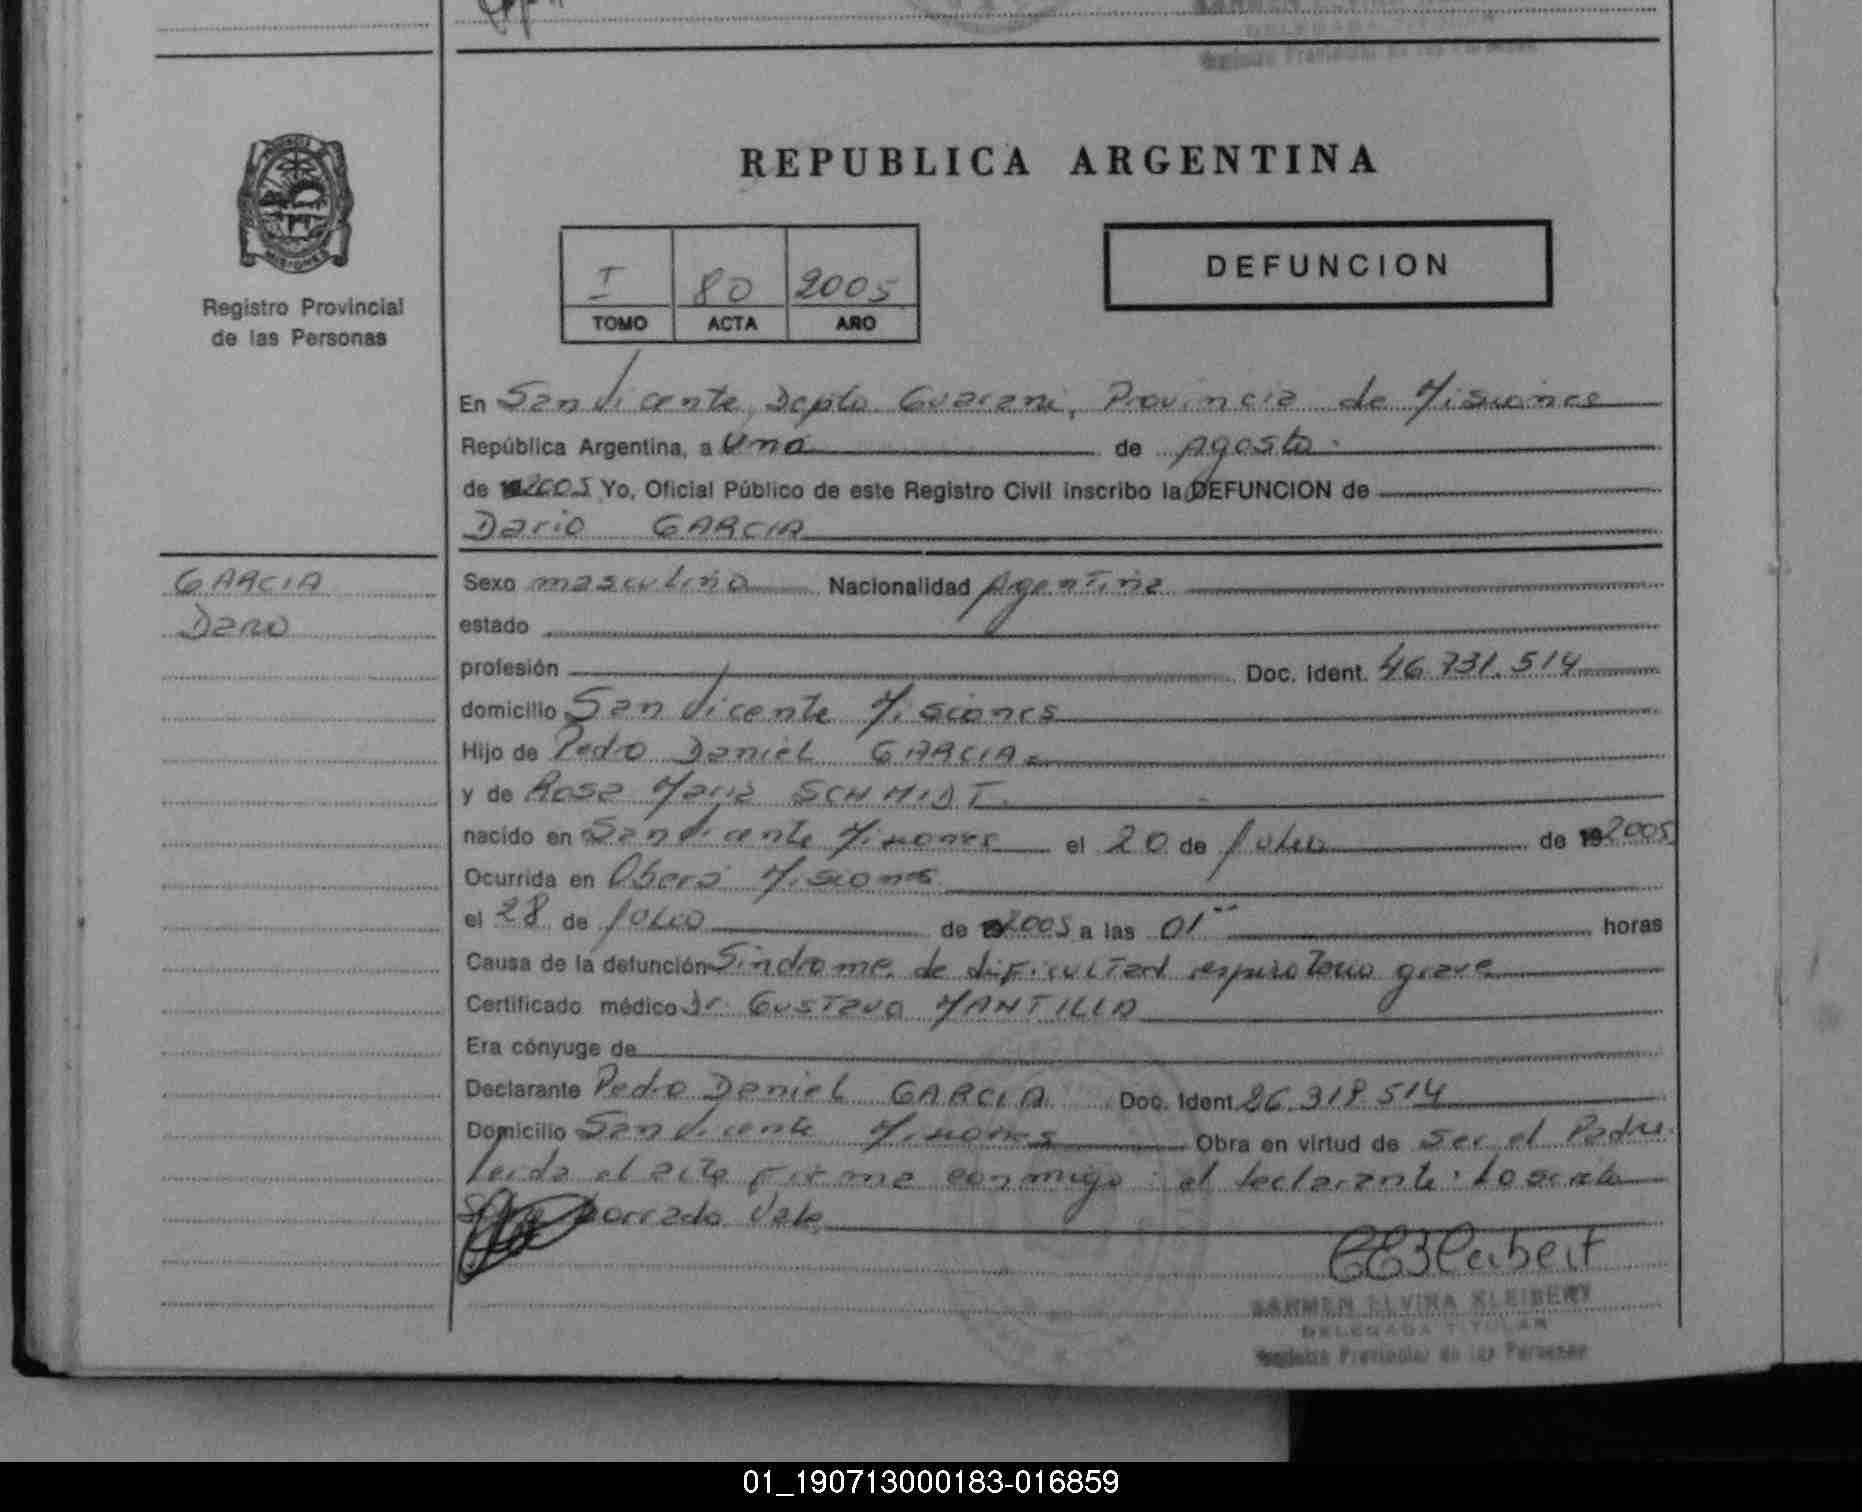 REPUBLICA ARGENTINA
PROVINCIA
MISIONES
Registro Provincial
de las Personas
I 80 2005
TOMO ACTA AÑO
DEFUNCION
En San Vicente, Depto. Guarani, Provincia de Misiones
República Argentina, a Uno de Agosto.
de 2005 Yo, Oficial Público de este Registro Civil inscribo la DEFUNCION de
Dario GARCIA
GARCIA
Dario
Sexo masculino Nacionalidad Argentina
estado
profesión Doc. Ident. 46.731.514
domicilio San Vicente Misiones
Hijo de Pedro Daniel GARCIA
y de Rosa Maria SCHMIDT.
nacido en San Vicente Misiones el 20 de Julio de 192005
Ocurrida en Oberá Misiones
el 28 de Julio de 2005 a las 01 horas
Causa de la defunción Sindrome de dificultad respiratorio grave
Certificado médico Dr. Gustavo MANTILLA
Era cónyuge de
Declarante Pedro Daniel GARCIA Doc. Ident. 26.318.514
Domicilio San Vicente Misiones Obra en virtud de ser el Padre.
Leida el acta firma conmigo: el declarante:
borrado Vale
CARMEN ELVIRA KLEIBERT
DELEGADA TITULAR
Registro Provincial de las Personas
01_190713000183-016859